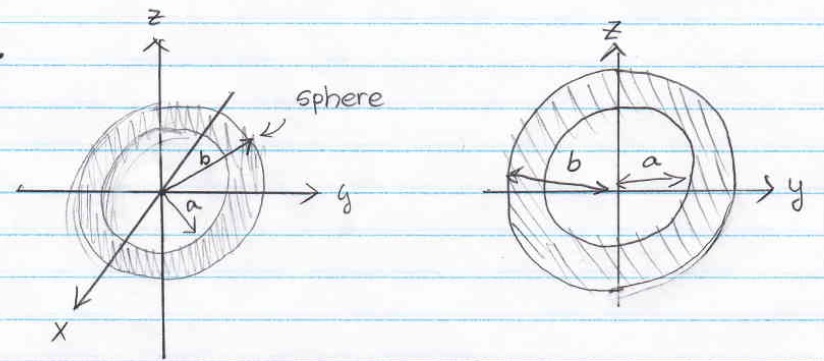 z
sphere
b
a
y
x
z
b
a
y